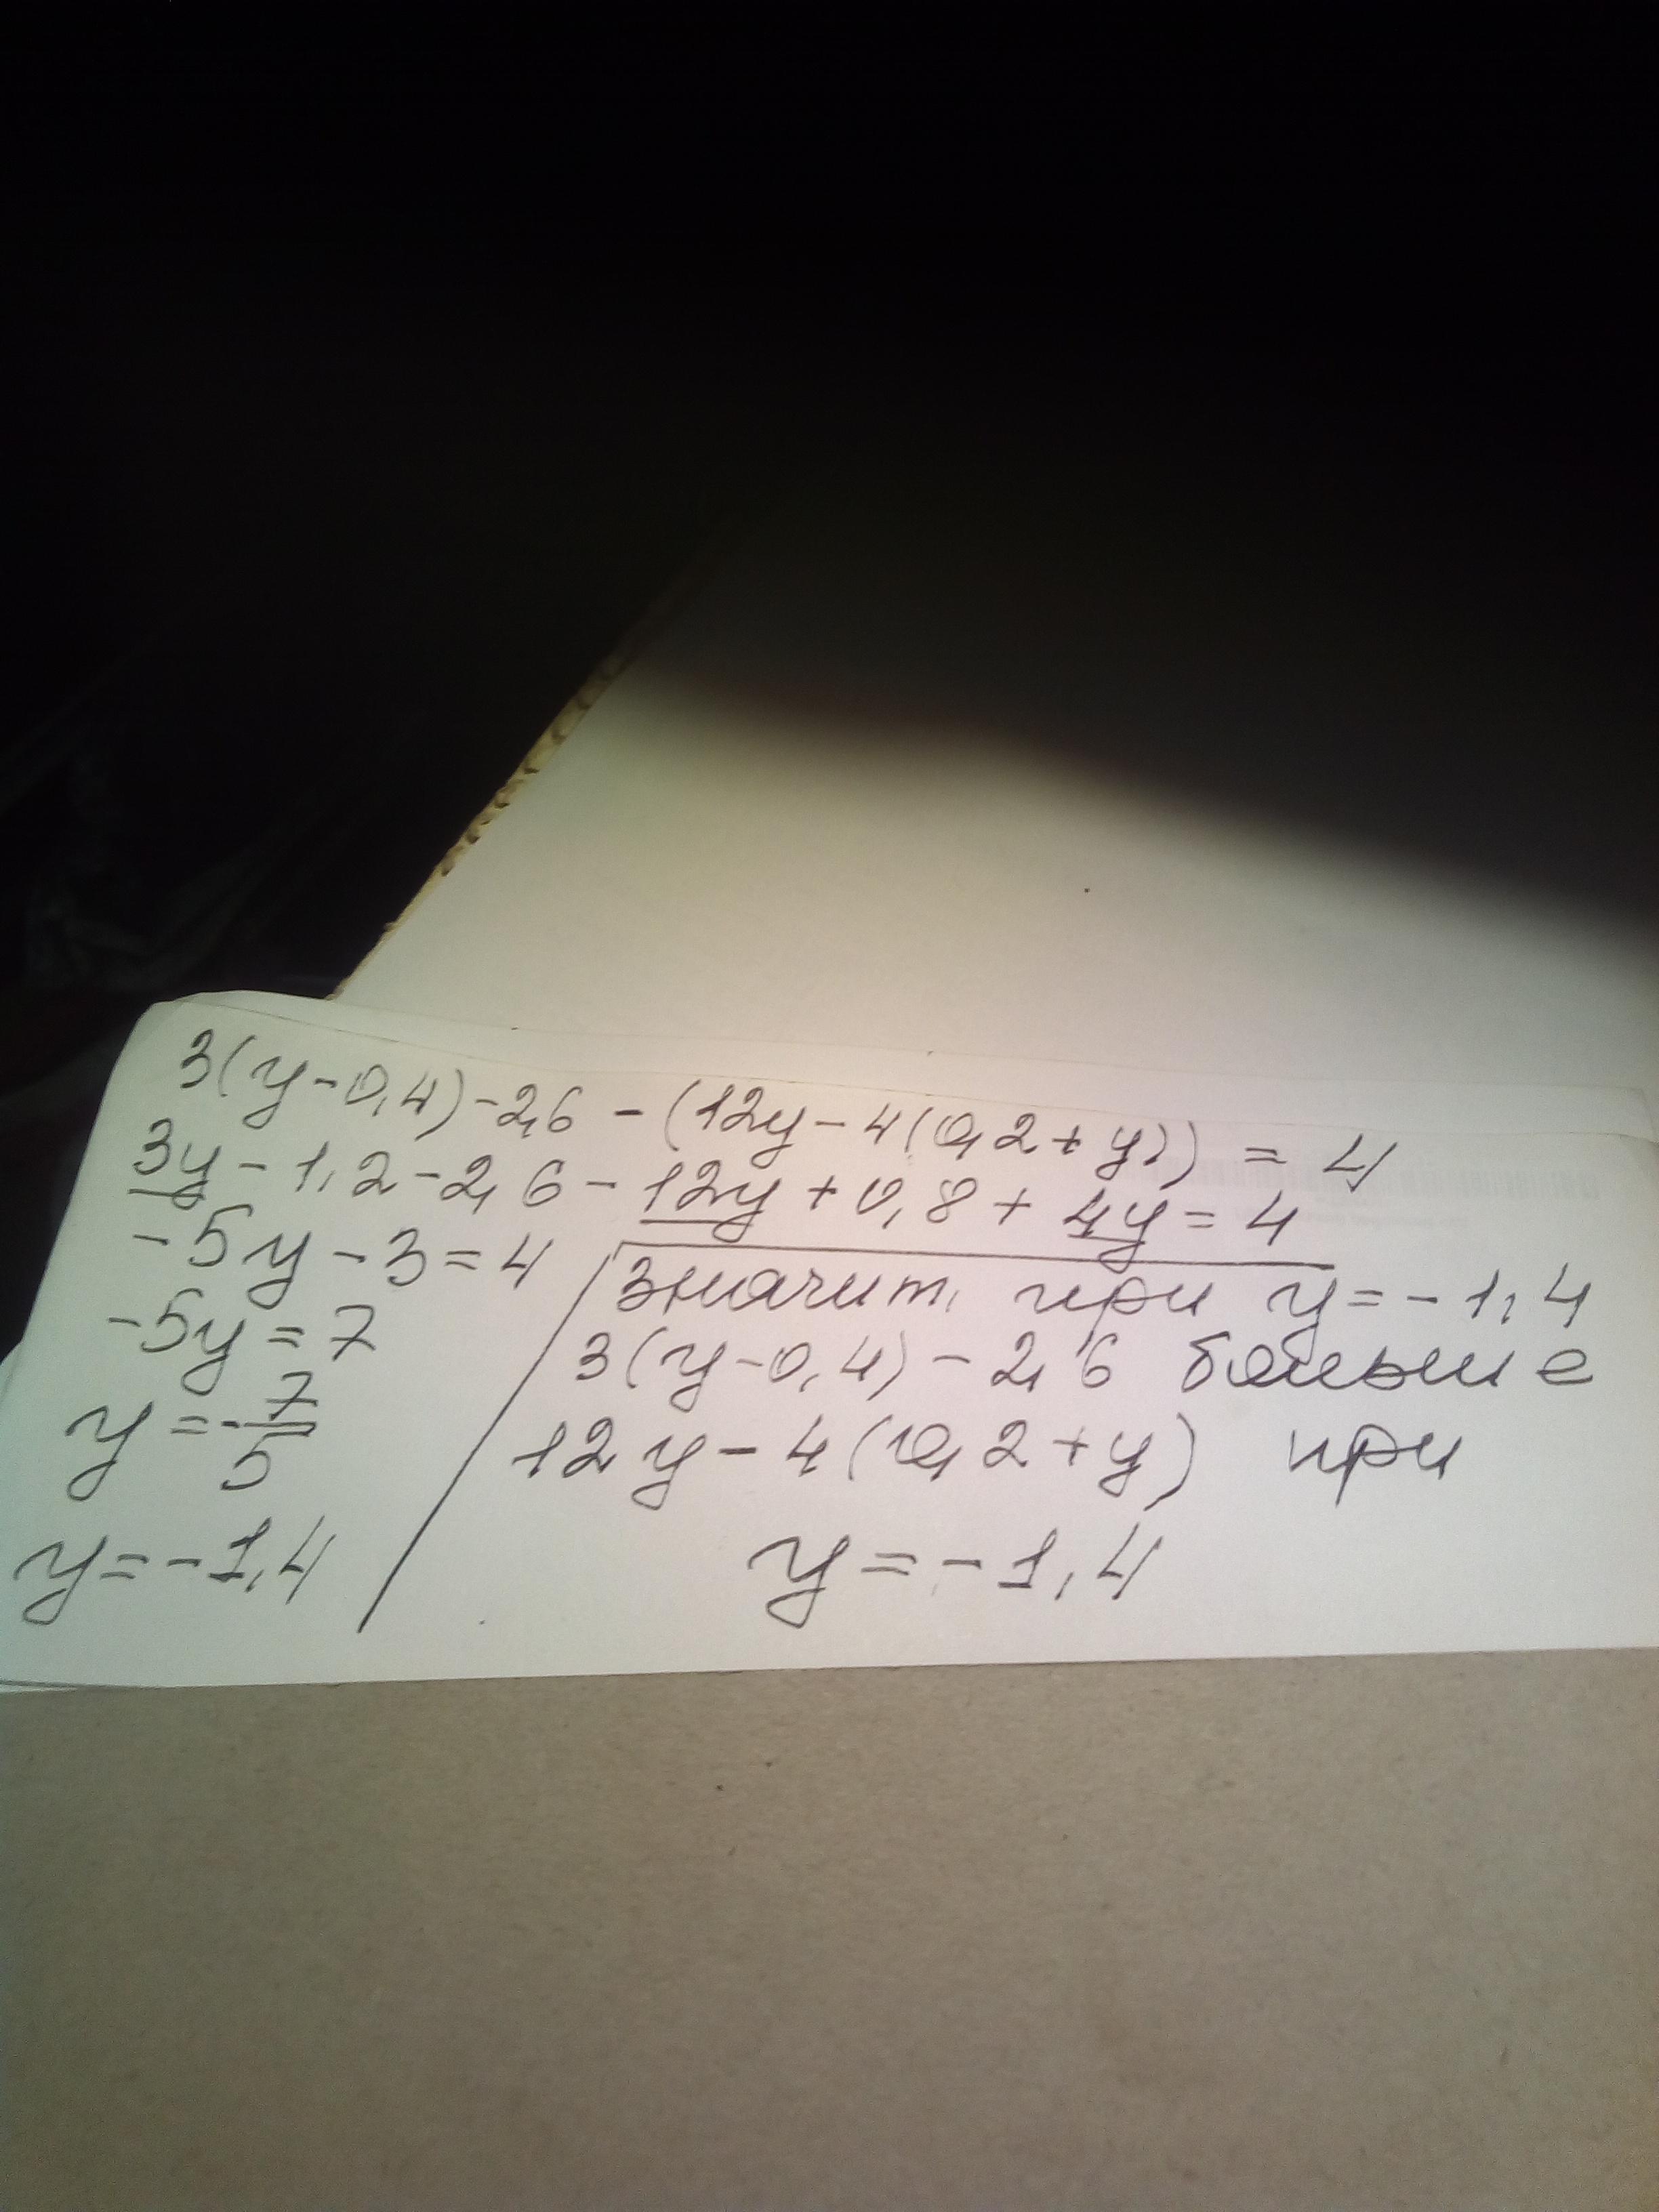 3(y-0,4)-2,6 - (12y-4(0,2+y)) = 4
3y-1,2-2,6-12y+0,8+4y=4
-5y-3=4
-5y=7
y=-7/5
y=-1,4
значит, при y=-1,4
3(y-0,4)-2,6 больше
12y-4(0,2+y) при
y=-1,4